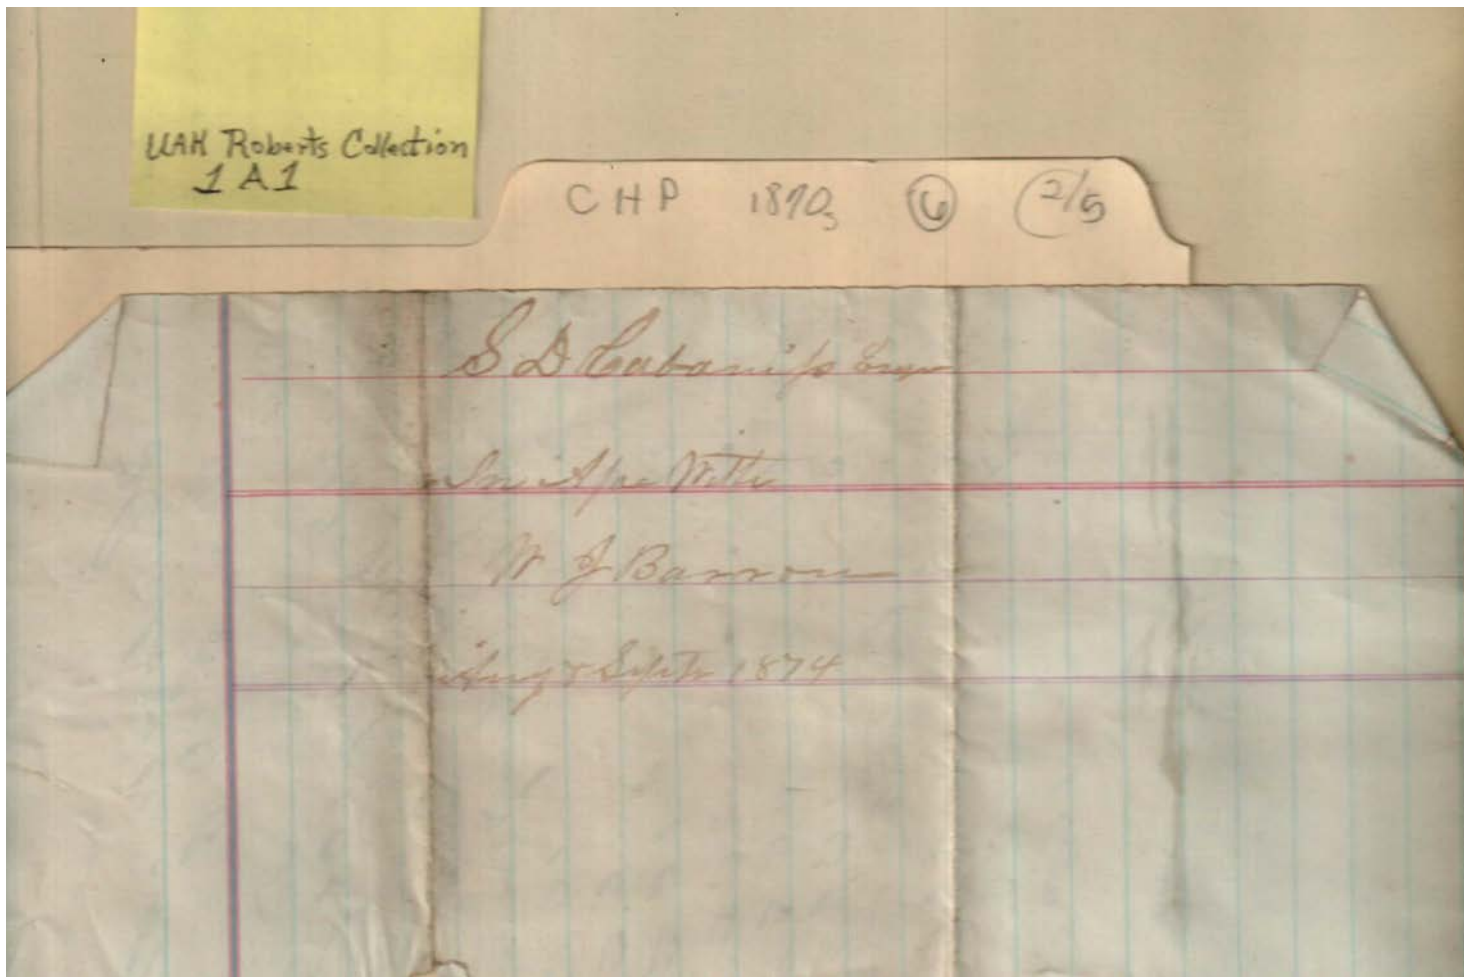 UAH Roberts Collection
1A1
CHP 1870s 6 2/5
S D Cabaniss Esqr
In A/c With
W J Barron
Aug & Septr 1874